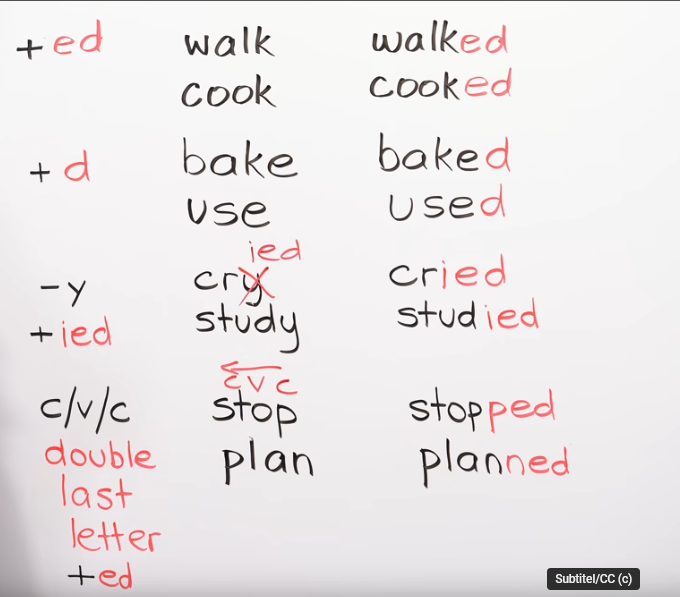 +ed walk walked
cook cooked
+d bake baked
use used
ied
-y cry cried
+ied study studied
cvc
c/v/c stop stopped
double plan planned
last
letter
+ed
Subtitel/CC (c)